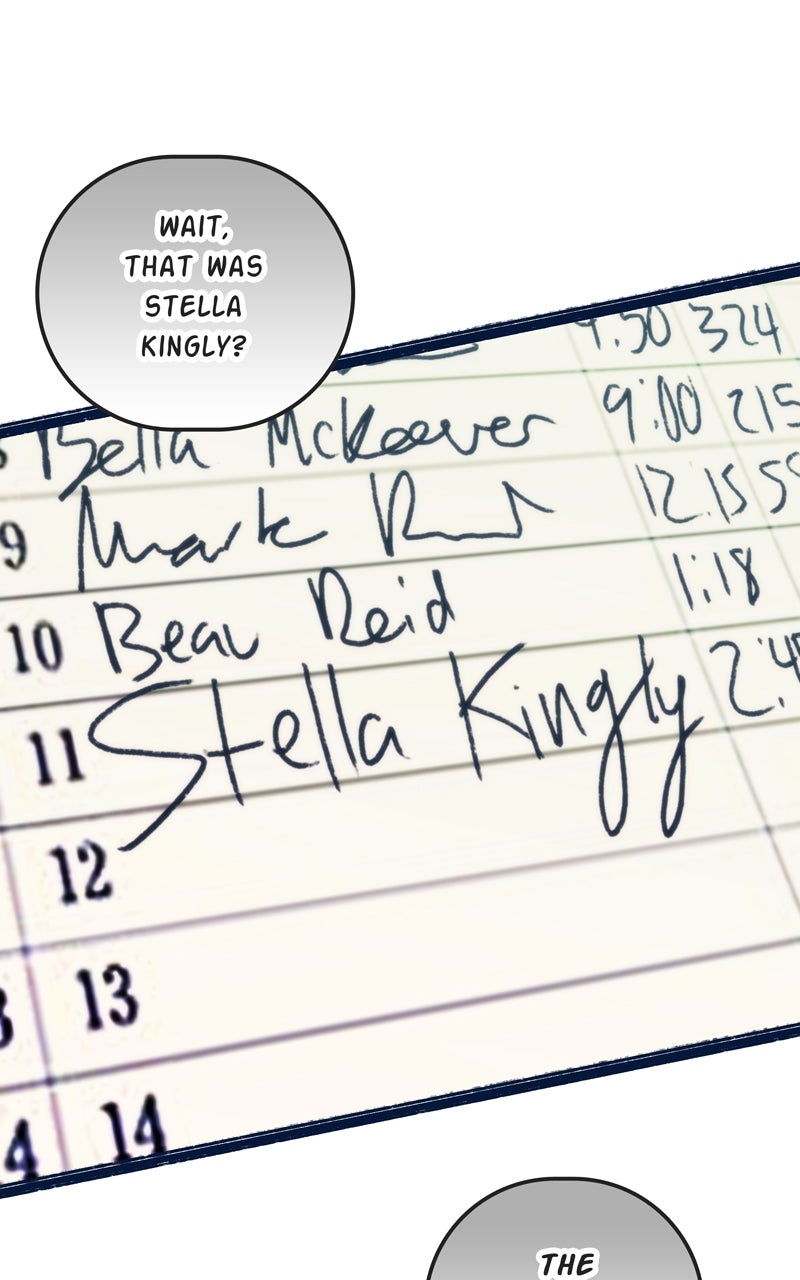 WAIT,
THAT WAS
STELLA
KINGLY?
9:50 324
Bella McKeever 9:00 215
9 Mark 12:15
10 Beau Reid 1:18
11 Stella Kingly
12
13
14
THE